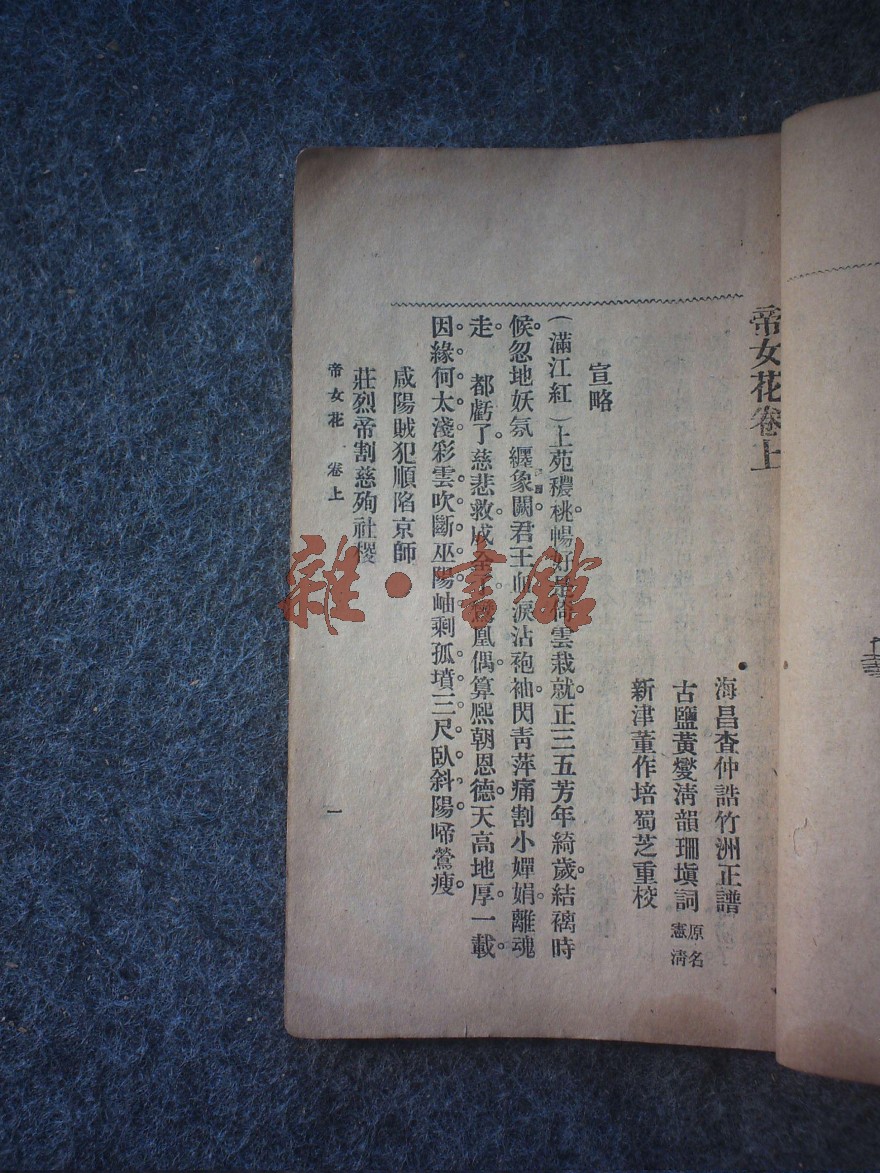 帝女花卷上
海昌查仲誥竹洲正譜
古鹽黃燮淸韻珊塡詞 原名憲淸
新津董作培蜀芝重校
宣略
(滿江紅)上苑穠桃。暢好是倚雲栽就。正三五芳年綺歲。結褵時
候。忽地妖氛纏象闕。君王血淚沾袍袖。閃靑萍痛割小嬋娟。離魂
走。 都虧了。慈悲救。成全了鳳凰偶。算熙朝恩德。天高地厚。一載
因緣何太淺。彩雲吹斷巫陽岫。剩孤墳三尺臥斜陽。啼鶯瘦。
咸陽賊犯順陷京師
莊烈帝割慈殉社稷
帝女花 卷上
一
雜·書館